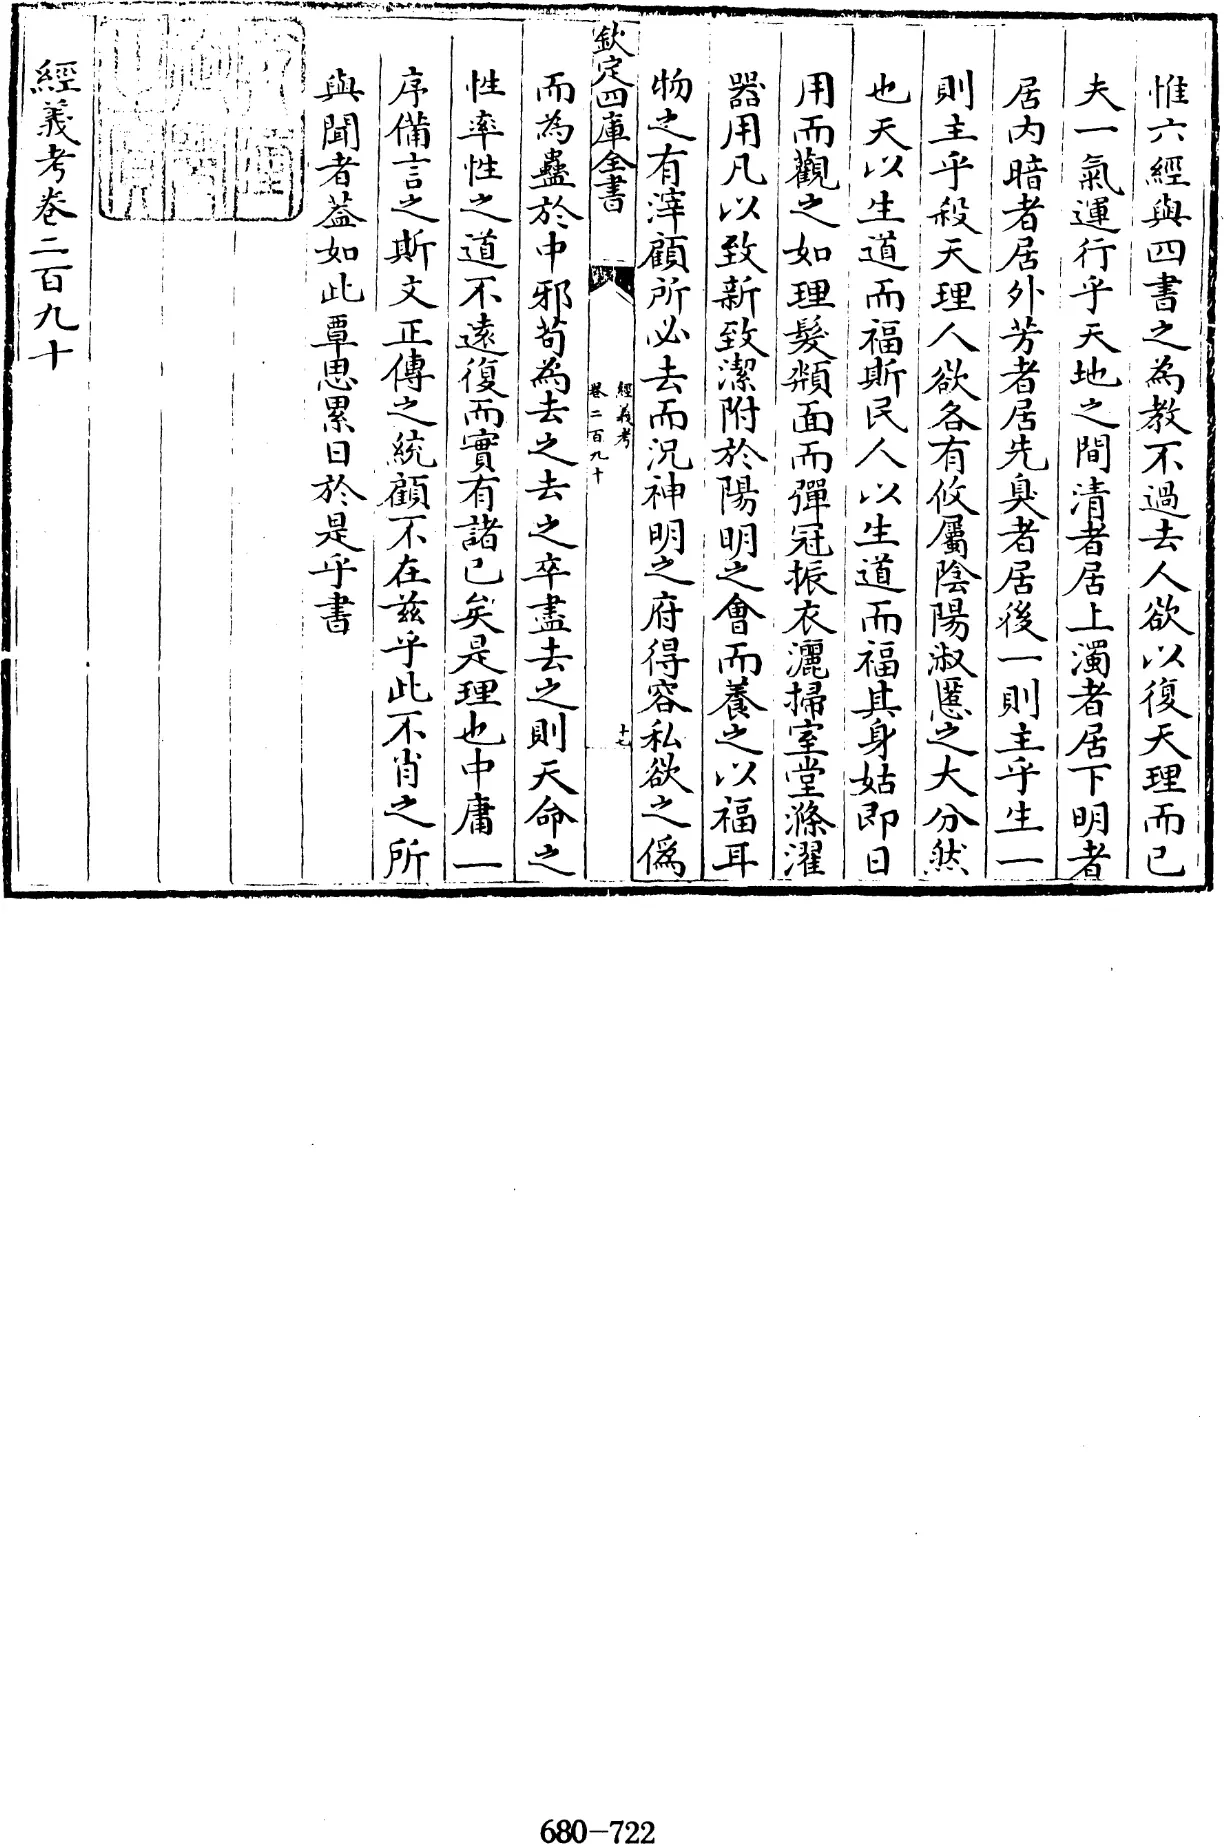 惟六經與四書之為教不過去人欲以復天理而已
夫一氣運行乎天地之間清者居上濁者居下明者
居内暗者居外芳者居先臭者居後一則主乎生一
則主乎殺天理人欲各有攸屬陰陽淑慝之大分然
也天以生道而福斯民人以生道而福其身姑即日
用而觀之如理髮頮面而彈冠振衣灑掃室堂滌濯
器用凡以致新致潔附於陽明之會而養之以福耳
物之有滓顧所必去而況神明之府得容私欲之僞
欽定四庫全書
經義考
卷二百九十
十七
而為蠱於中邪苟為去之去之卒盡去之則天命之
性率性之道不遠復而實有諸已矣是理也中庸一
序備言之斯文正傳之統顧不在兹乎此不肖之所
與聞者葢如此覃思累日於是乎書
經義考卷二百九十
680-722